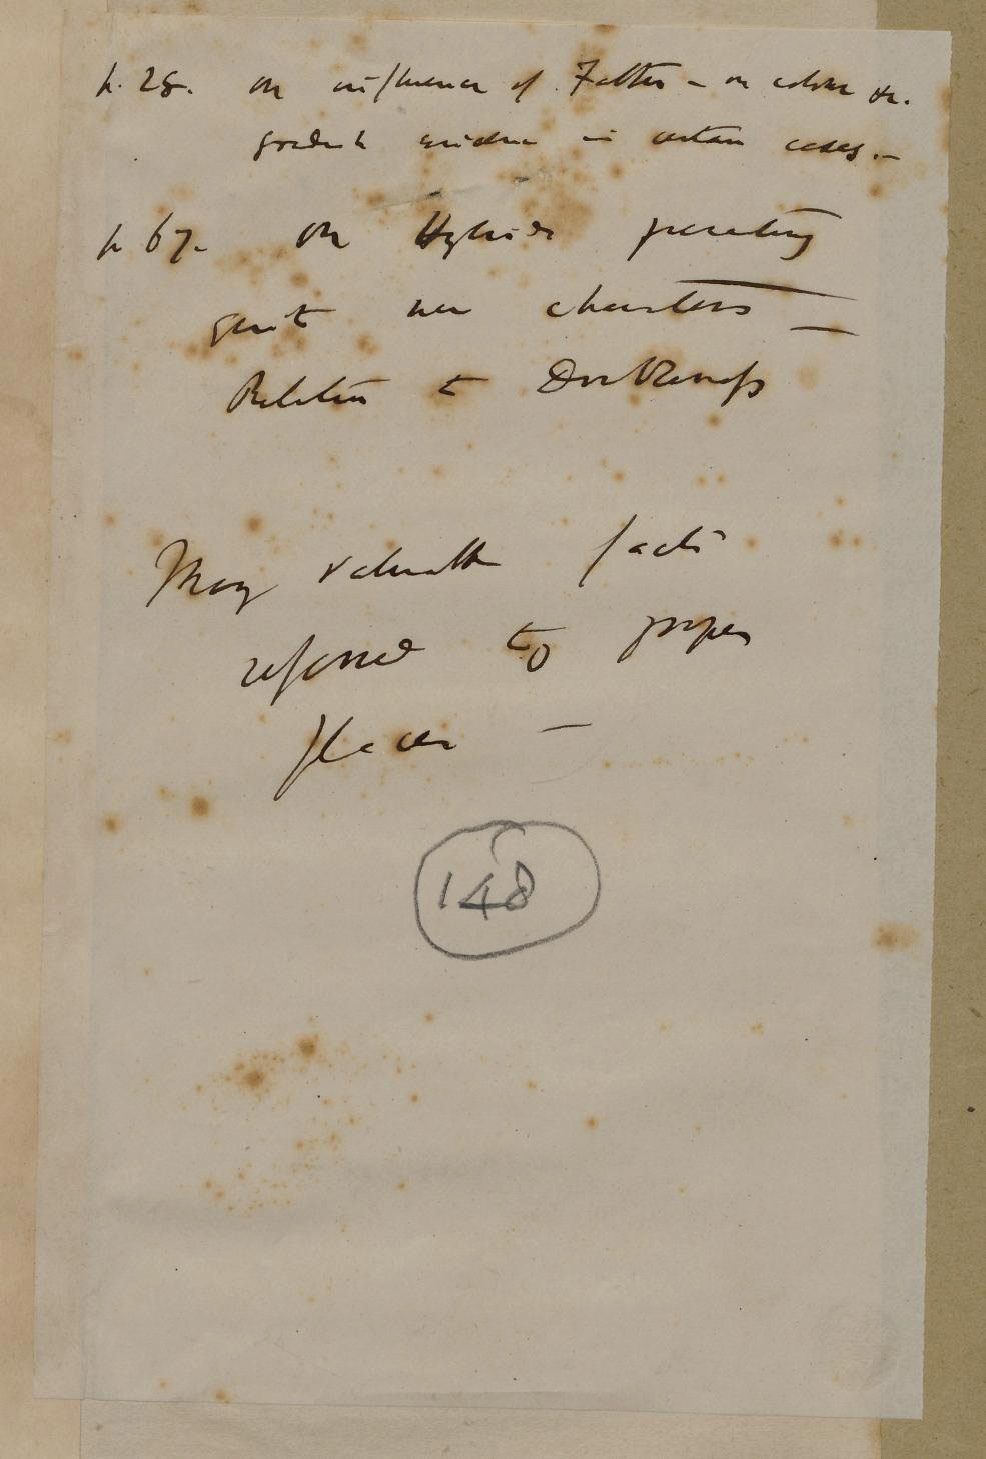 p. 28. On influence of Father – on colour &c.
gradient evidence in certain cases. –
p 67. On Hybrids presenting
quite new characters –
Relation to
Many valuable facts
referred to proper
places –
148